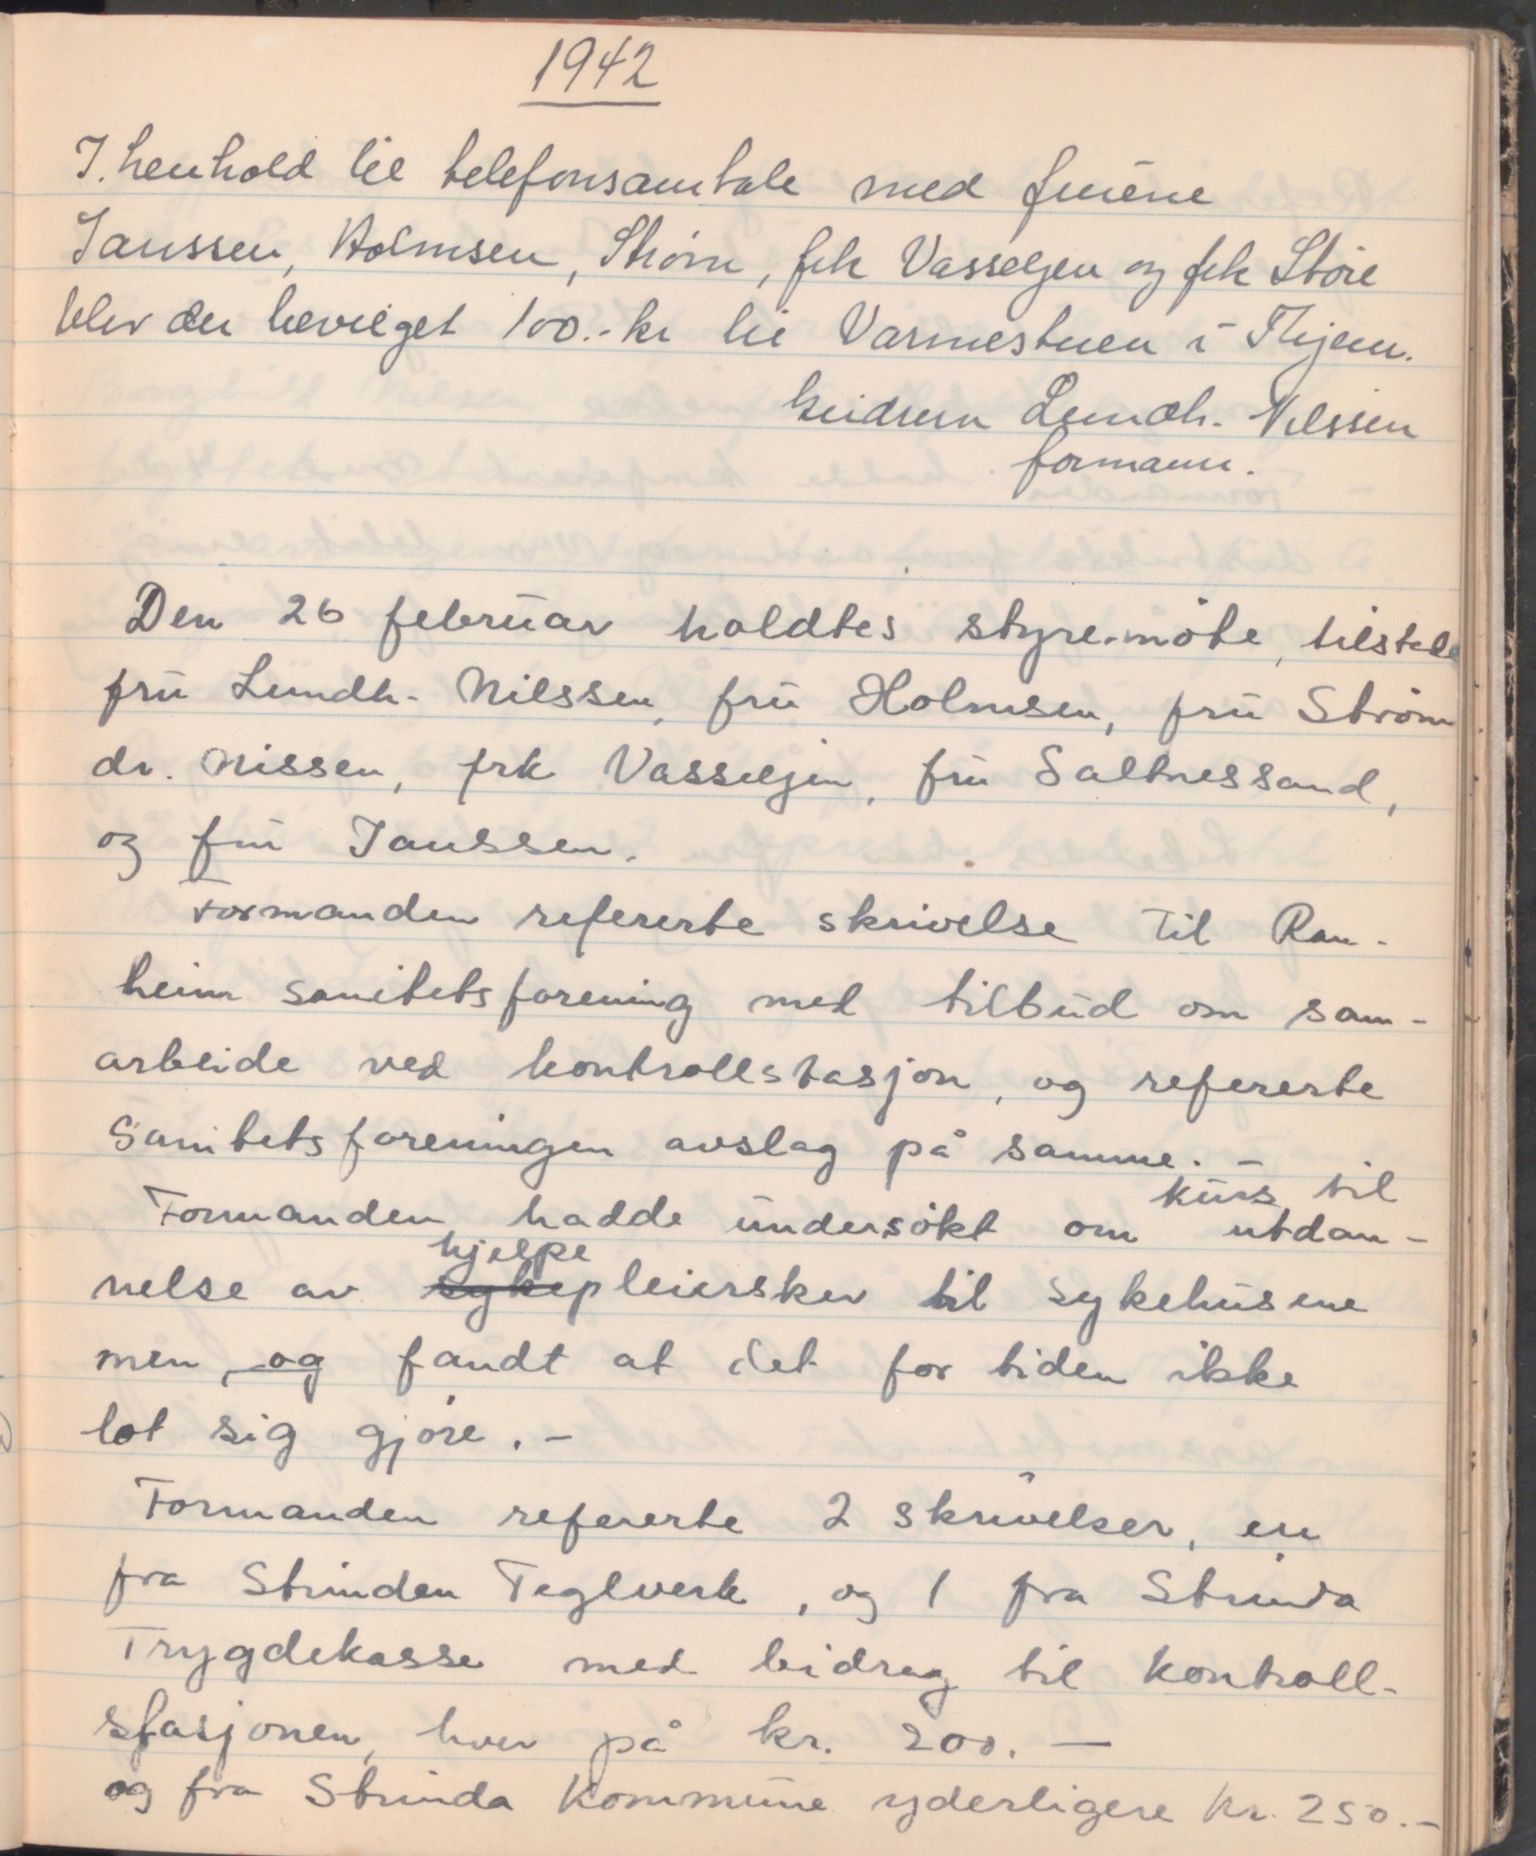 1942
I. henhold til telefonsamtale med fruene
Janssen, Holmsen, Strøm, frk Vasseljen og frk Støre
blev der bevilget 100.- kr til Varmestuen i Thjem.
Guidrun Lundh. Nilssen
formann.
Den 26 februar holdtes styre-møte, tilstede
fru Lundh- Nilssen, fru Holmsen, fru Strøm
dr. Nissen, frk Vasseljen, fru Saltnessand,
og fru Janssen.
Formanden refererte skrivelse til Ran-
heim sanitetsforening med tilbud om sam-
arbeide ved kontrollstasjon, og refererte
Sanitetsforeningen avslag på samme. -
Formanden hadde undersøkt om kurs til utdan-
nelse av sykepleiersker hjelpe til sykehusene
men og fandt at det for tiden ikke
lot sig gjøre. -
Formanden refererte 2 skrivelser, en
fra Strinden Teglverk, og 1 fra Strinda
Trygdekasse med bidrag til kontroll-
stasjonen, hver på kr. 200. -
og fra Strinda Kommune yderligere kr. 250. -